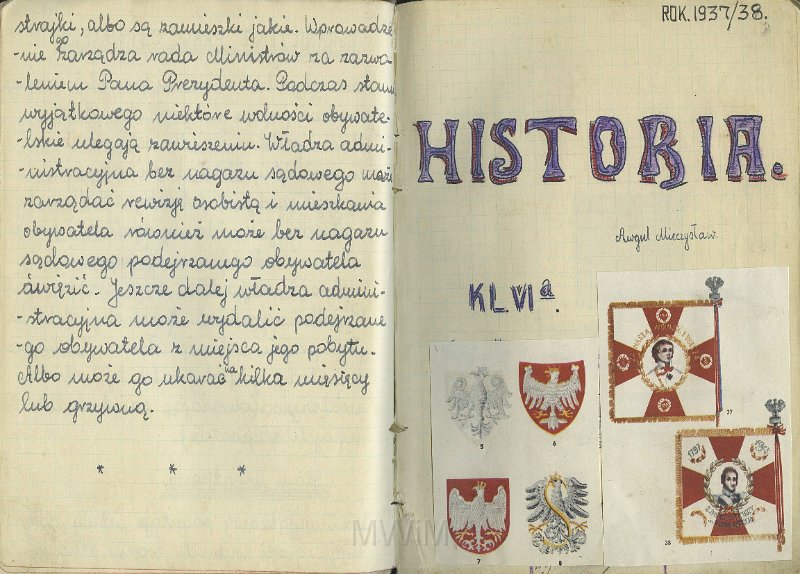 strajki, albo są zamieszki jakie. Wprowadze
-nie go zarządza rada Ministrów za zezwa
-leniem Pana Prezydenta. Podczas stanu
wyjątkowego niektóre wolności obywate-
-lskie ulegają zawieszeniu. Władza admi-
-nistracyjna bez nagazu sądowego może
zarządać rewizję osobistą i mieszkania
obywatela również może bez nagazu
sądowego podejrzanego obywatela
uwięzić. Jeszcze dalej władza admini-
-stracyjna może wydalić podejrzane
-go obywatela z miejsca jego pobytu.
Albo może go ukarać na kilka miesięcy
lub grzywną.
* * *
ROK. 1937/38.
HISTORIA.
Awgul Mieczysław.
KL. VI a.
5
6
7
8
37
38
1797
MWiM